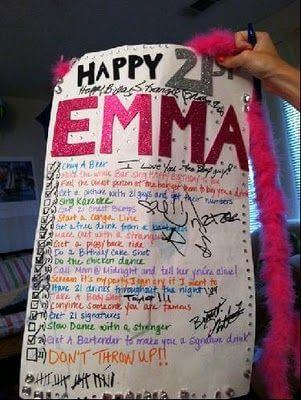 HAPPY 21st
Happy B-Day
EMMA
Chug A Beer
I Love You - the Bday guy!
Make the whole Bar sing HAPPY BIRTHDAY to me
Find the oldest person at the bar get them to buy you a drink
Get a picture with 21 guys and get their numbers
Sing Karaoke
Get 21 Chest Bumps
Start a Conga Line
Get a free drink from a bartender
Make out with a stranger
Get a piggy back ride
Do a Birthday Cake Shot
Do the chicken dance
Call Mom @ Midnight and tell her you're alive!
Scream it's my party I can cry if I want to
Have 21 drinks throughout the night
Take A Body Shot
Convince someone you are famous
Get 21 signatures
Slow Dance with a stranger
Get A Bartender to make you a signature drink
DON'T THROW UP!!